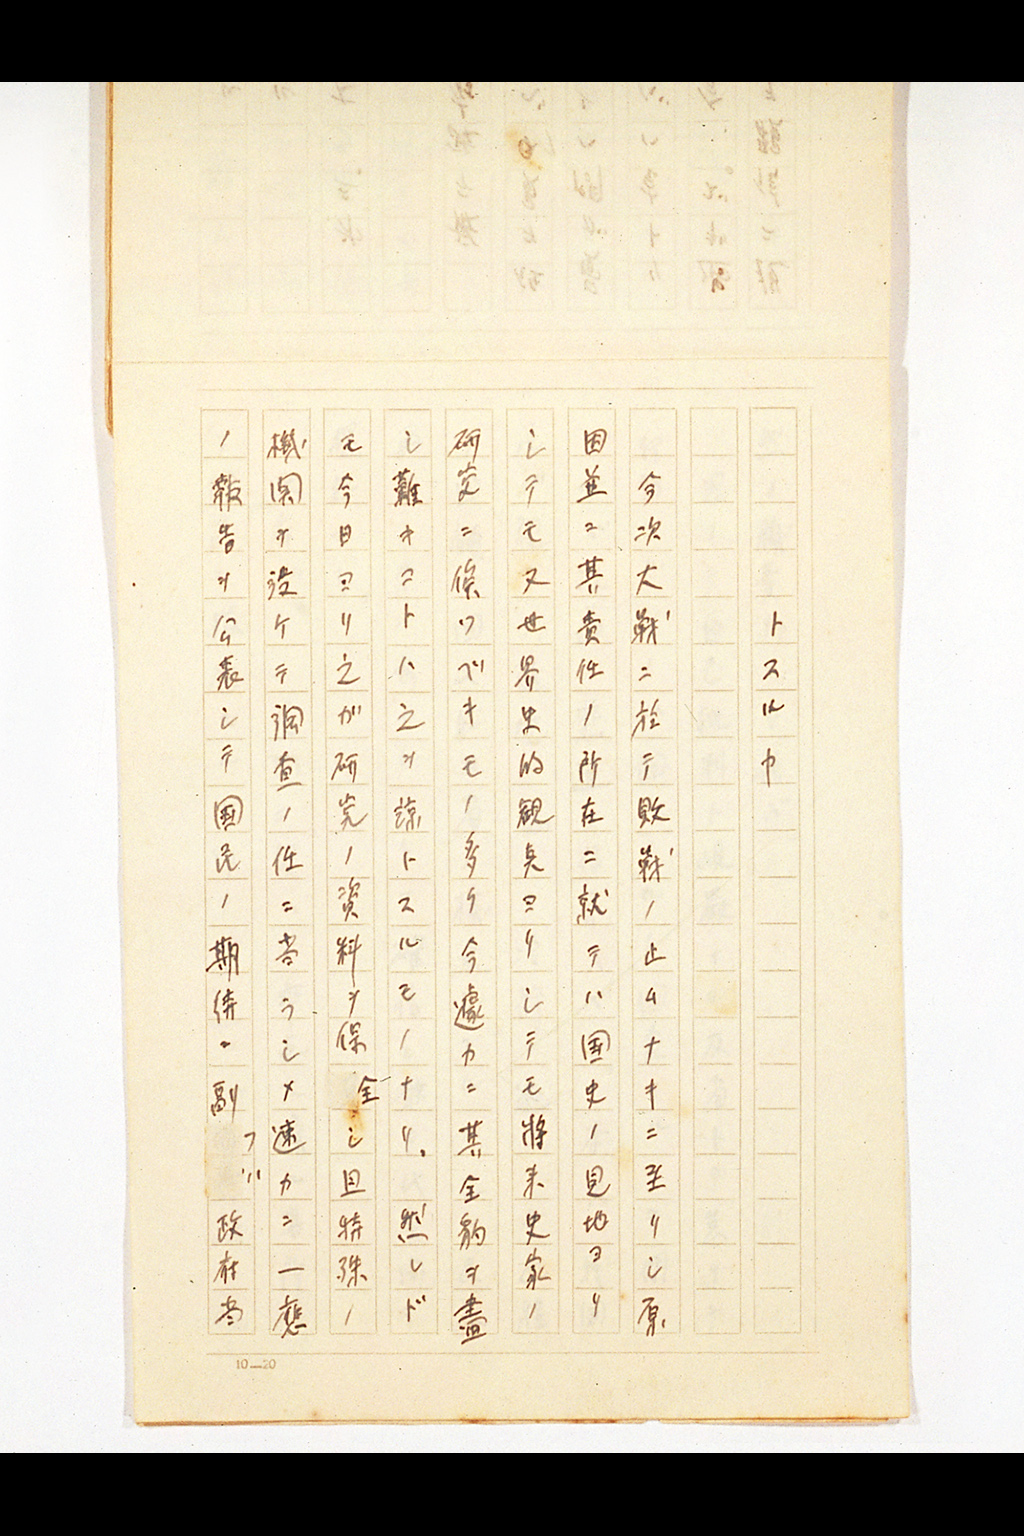 トスルカ
今次大戦ニ於テ敗戦ノ止ムナキニ至リシ原
因並ニ其責任ノ所在ニ就テハ国史ノ見地ヨリ
シテモ又世界史的観点ヨリシテモ将来史家ノ
研究ニ俟ツベキモノ多ク今遽カニ其全豹ヲ盡
シ難キコトハ之ヲ諒トスルモノナリ。然レド
モ今日ヨリ之ガ研究ノ資料ヲ保全シ且特殊ノ
機関ヲ設ケテ調査ノ任ニ当ラシメ速カニ一應
ノ報告ヲ公表シテ国民ノ期待ニ副フハ政府当
10—20